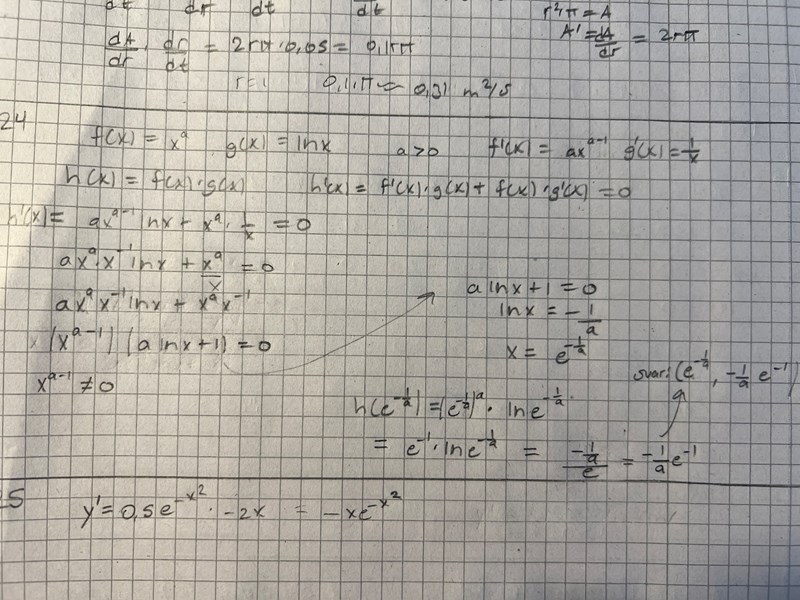 dt dr dt dt
r²π = A
dA/dr · dr/dt = 2rπ · 0,05 = 0,1π
A' = dA/dr = 2rπ
r=1 0,1·π ≈ 0,31 m²/s
24
f(x) = xᵃ g(x) = lnx a>0 f'(x) = axᵃ⁻¹ g'(x) = 1/x
h(x) = f(x)·g(x) h'(x) = f'(x)·g(x) + f(x)·g'(x) = 0
h'(x) = axᵃ⁻¹ lnx + xᵃ · 1/x = 0
axᵃ·x⁻¹ lnx + xᵃ/x = 0
axᵃ x⁻¹ lnx + xᵃ x⁻¹
(xᵃ⁻¹) (a lnx+1) = 0
xᵃ⁻¹ ≠ 0
a lnx + 1 = 0
lnx = -1/a
x = e^(-1/a)
svar: (e^(-1/a), -1/a e⁻¹)
h(e^(-1/a)) = (e^(-1/a))ᵃ · ln e^(-1/a)
= e⁻¹ · ln e^(-1/a) = (-1/a)/e = -1/a e⁻¹
25
y' = 0,5e^(-x²) · -2x = -xe^(-x²)